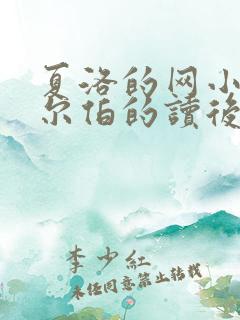 夏洛的网小
尔伯的讀後
李少紅
未经同意禁止转载